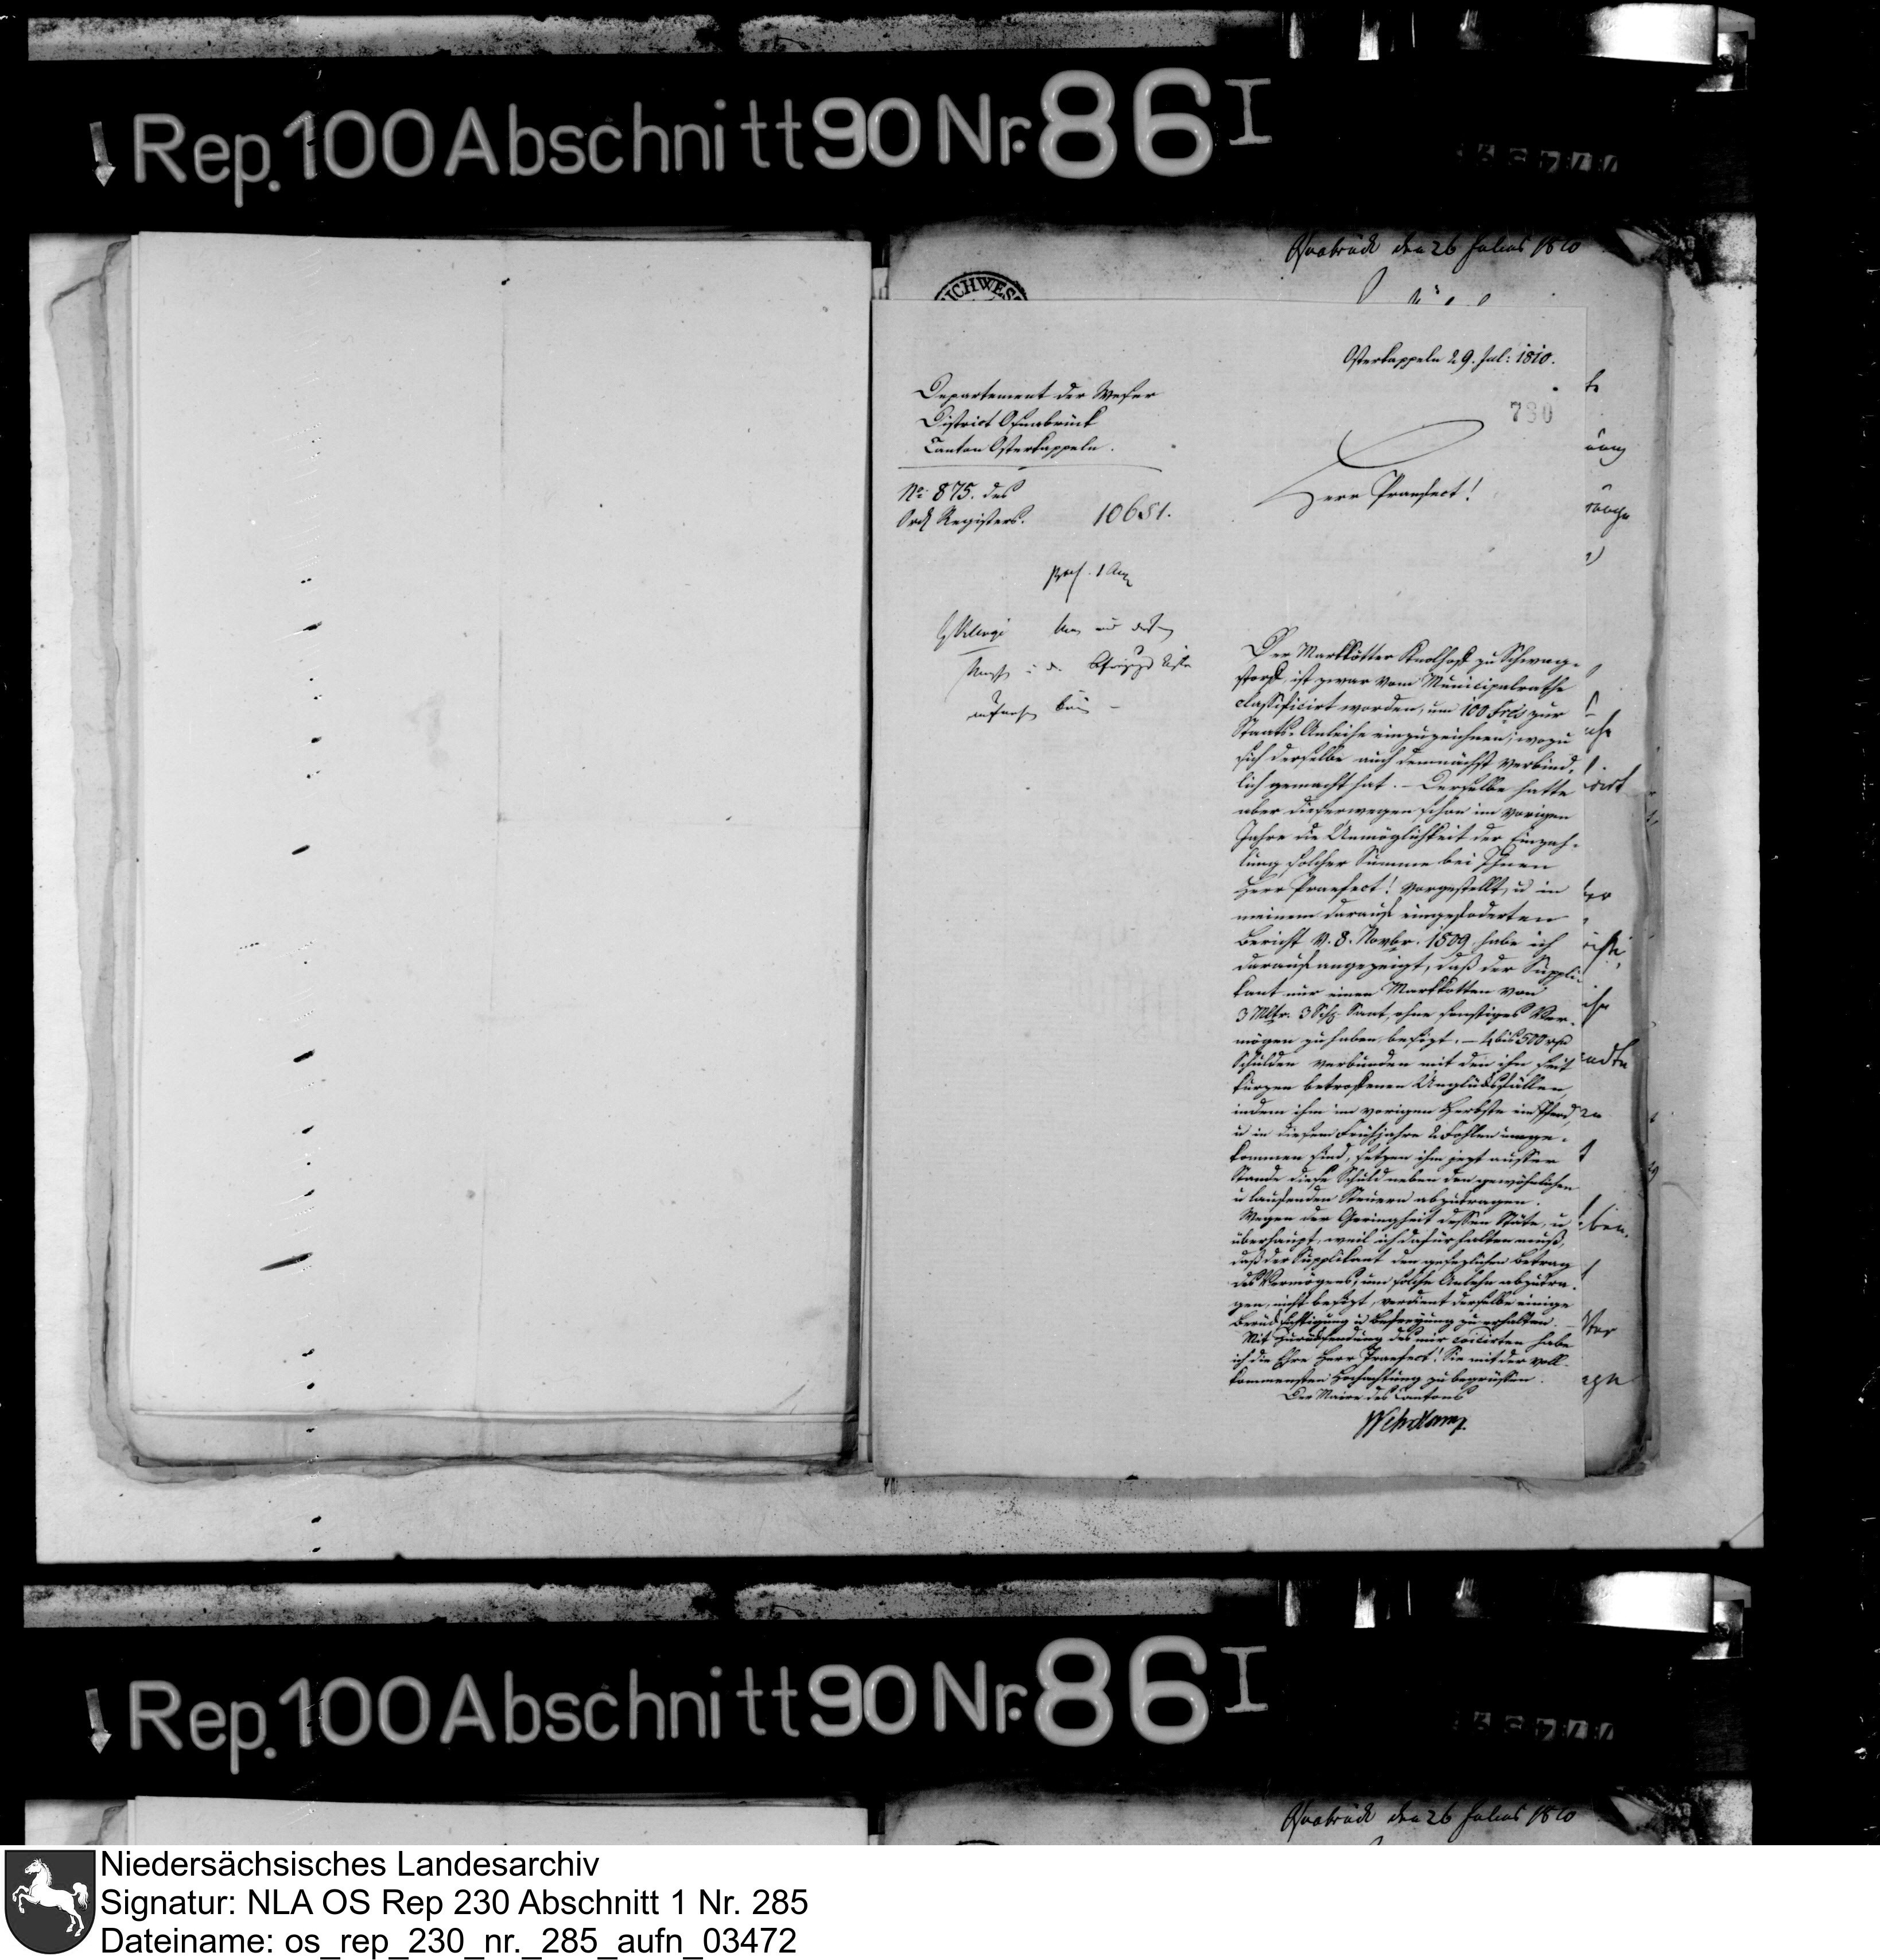 Rep. 100 Abschnitt 90 Nr. 86 I
Osnabrück den 26 Julius 1810
Osterkappeln 29. Jul: 1810.
730
Departement der Weser
District Osnabrück
Canton Osterkappeln.
No. 875. des
Registers.
10651.
Herr Praefect!
Der Markkötter Knolhoff zu Schwag-
storff, ist zwar vom Municipalrathe
classificirt worden, um 100 Frcs zur
Staats-Anleihe einzuzeichnen; wozu
sich derselbe auch demnächst verbind-
lich gemacht hat. – Derselbe hatte
aber dieserwegen schon im vorigen
Jahre die Unmöglichkeit der Einzah-
lung solcher Summe bei Ihnen
Herr Praefect! vorgestellt, u in
meinem darauf eingefoderten
Bericht v. 8. Novbr. 1809 habe ich
darauf angezeigt, daß der Suppli-
kant nur einen Markkotten von
3 Mltr. 3 Schf. Saat, ohne sonstiges Ver-
mögen zu haben, besizt. – 4 bis 500 rthlr
Schulden verbunden mit den ihn seit
kurzen betroffenen Unglücksfällen,
indem ihm im vorigen Herbste ein Pferd,
u in diesem Frühjahre 2 Fohlen umge-
kommen sind, setzen ihn jezt ausser
Stande diese Schuld neben den gewöhnlichen
u laufenden Steuern abzutragen.
Wegen der Geringheit dessen Stäte, u
überhaupt, weil ich dafür halten muß,
daß der Supplikant den gesezlichen Betrag
des Vermögens, um solche Anleihe abzutra-
gen, nicht besizt, verdient derselbe einige
Berücksichtigung u Befreyung zu erhalten. –
Mit Zurücksendung des mir comitirten habe
ich die Ehre Herr Praefect! Sie mit der voll-
kommensten Hochachtung zu begrüssen.
Der Maire des Cantons
Wehrkamp.
Rep. 100 Abschnitt 90 Nr. 86 I
Osnabrück den 26 Julius 1810
Niedersächsisches Landesarchiv
Signatur: NLA OS Rep 230 Abschnitt 1 Nr. 285
Dateiname: os_rep_230_nr._285_aufn_03472